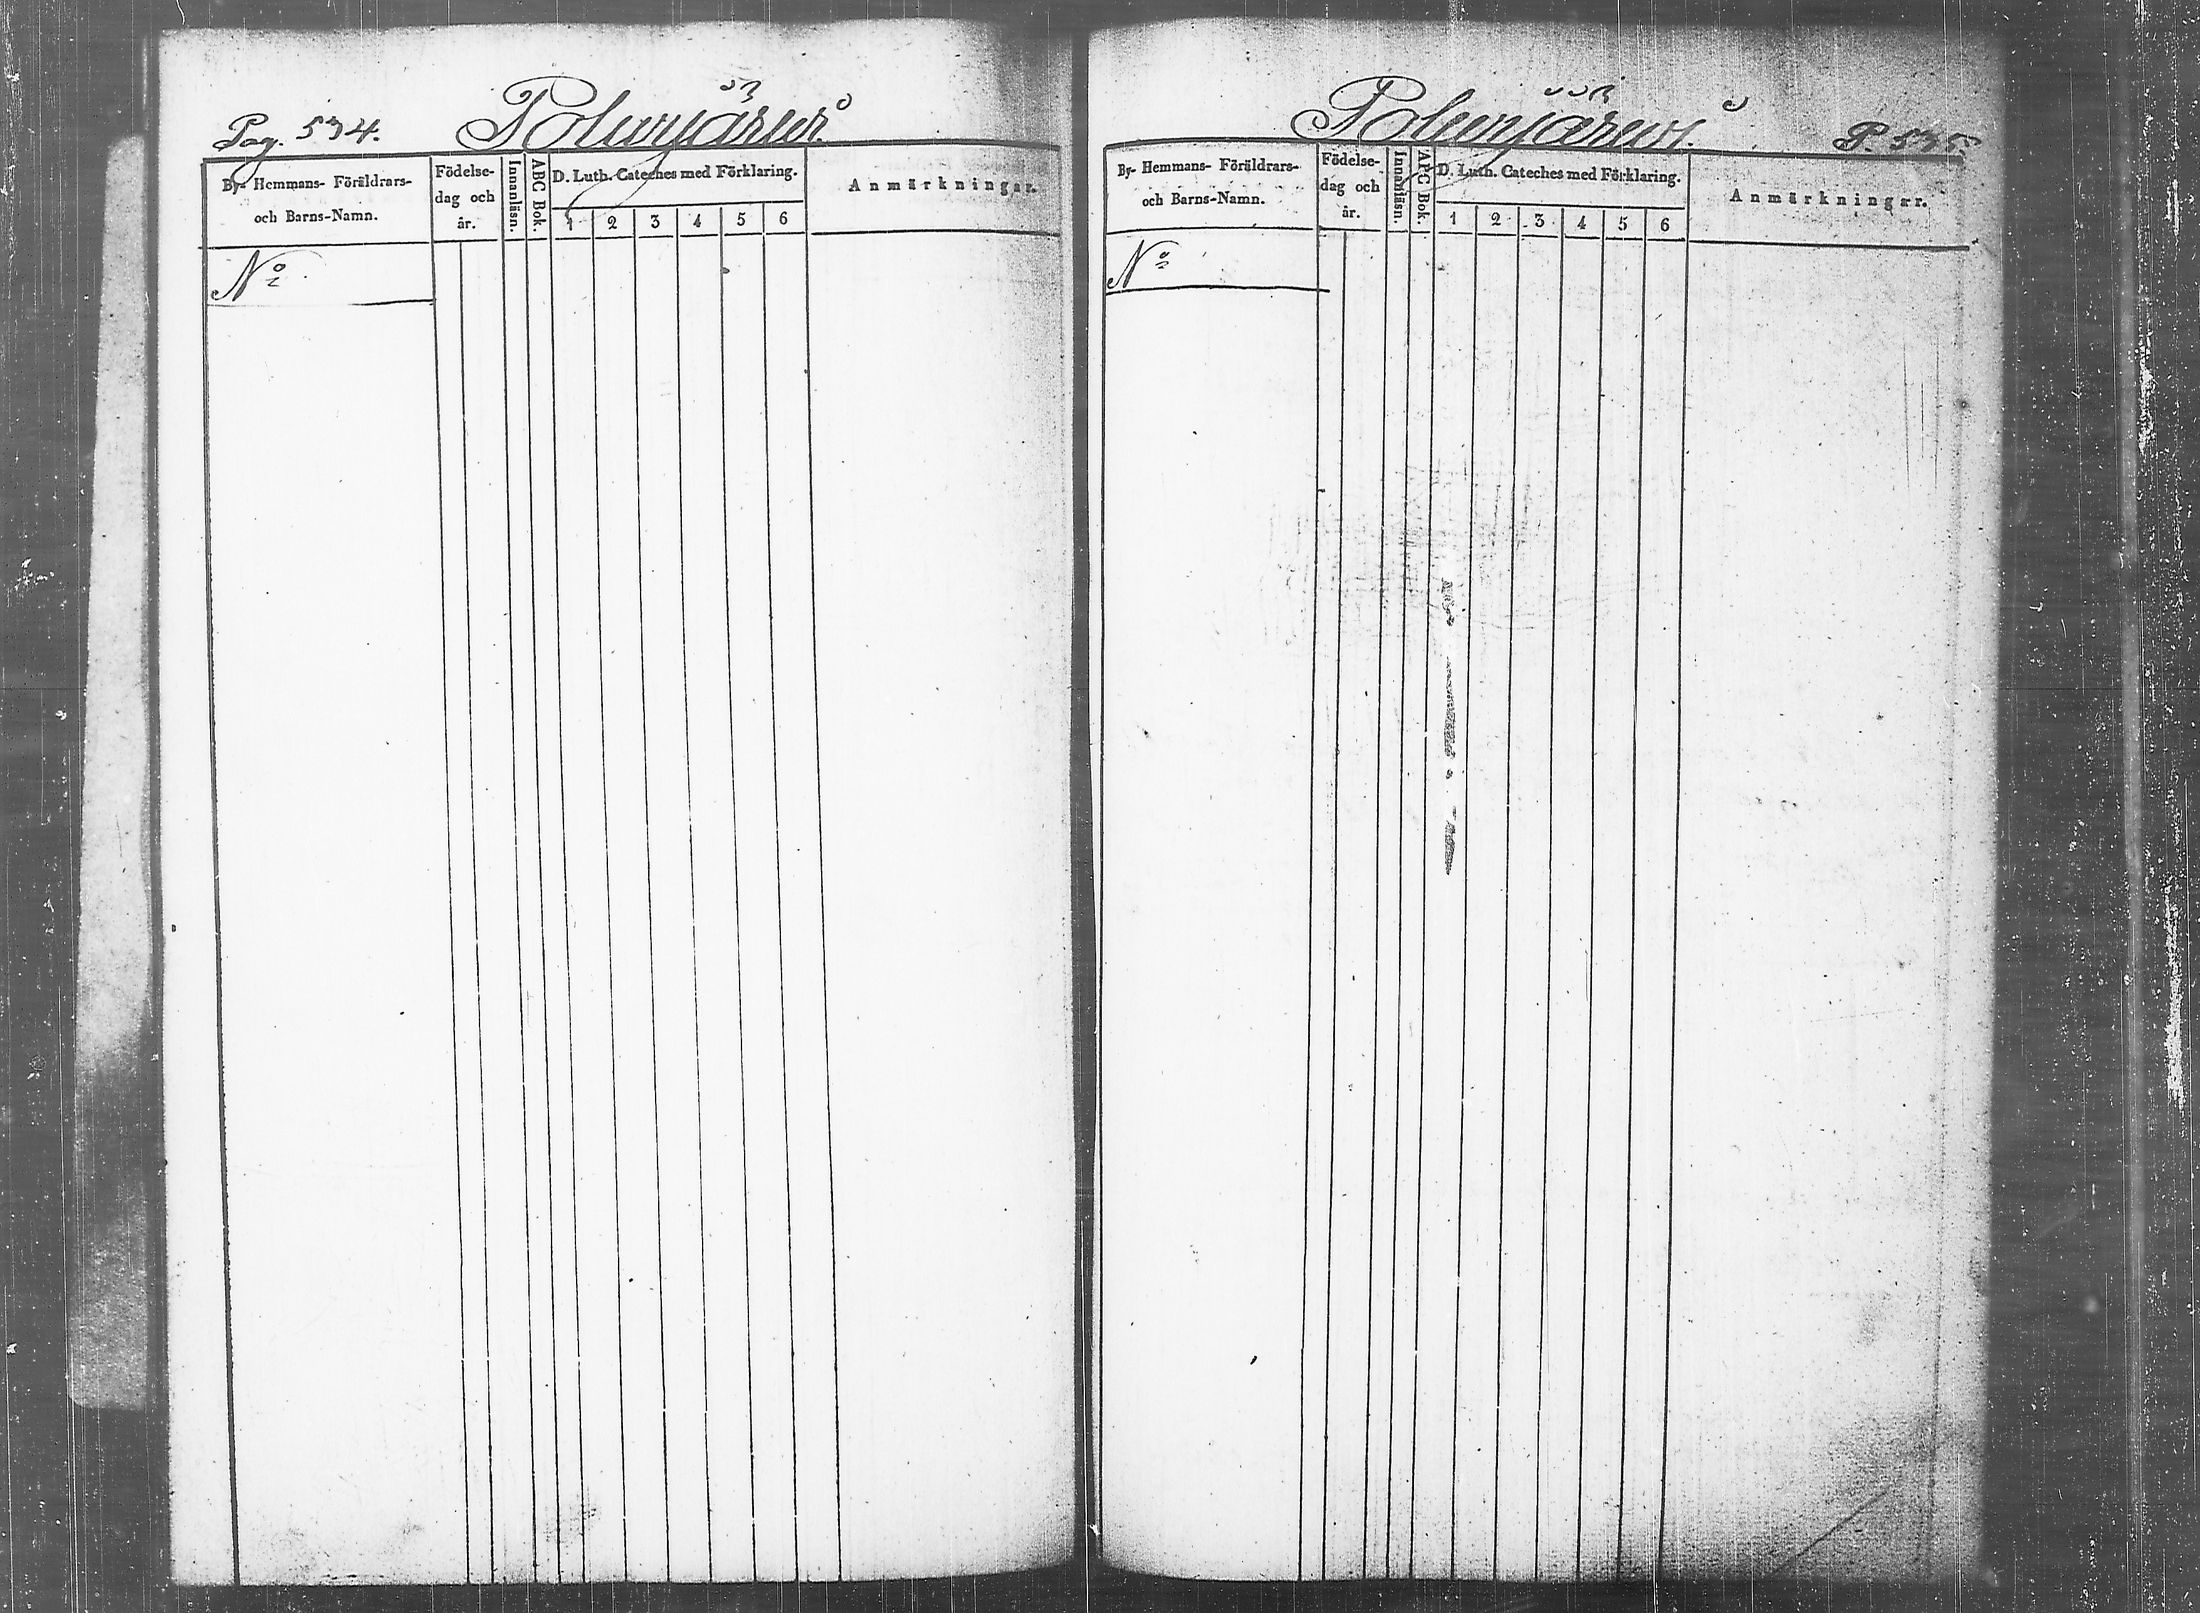 Pag. 534. Polvijärvi.
By- Hemmans- Föräldrars-
och Barns-Namn.
Födelse-
dag och
år.
Innanläsn.
ABC Bok.
D. Luth. Cateches med Förklaring.
1 2 3 4 5 6
Anmärkningar.
No
Polvijärvi. P. 535.
By- Hemmans- Föräldrars-
och Barns-Namn.
Födelse-
dag och
år.
Innanläsn.
ABC Bok.
D. Luth. Cateches med Förklaring.
1 2 3 4 5 6
Anmärkningar.
No